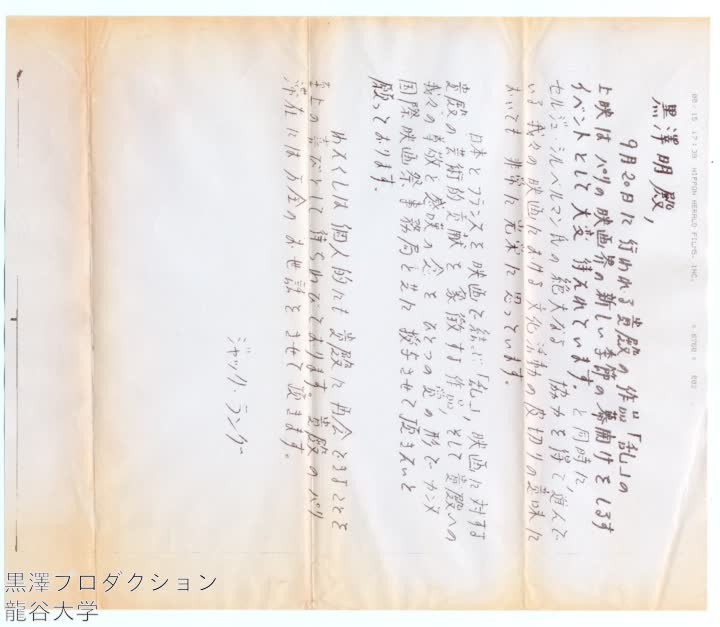 08/15 17:39 NIPPON HERALD FILMS, INC. 002
黒澤明殿,
9月20日に行われる貴殿の作品「乱」の
上映はパリの映画界の新しい季節の幕開けをしるす
イベントとして大変待たれています。と同時に,
セルジュ・シルベルマン氏の絶大なる協力を得て進んで
いる我々の映画における文化活動の皮切りの意味に
おいても非常に光栄に思っています。
日本とフランスを映画で結ぶ「乱」, 映画に対する
貴殿の芸術的貢献を象徴する作品, そして貴殿への
我々の尊敬と感嘆の念をひとつの賞の形でカンヌ
国際映画祭事務局と共に授与させて頂きたいと
願っております。
わたくしは個人的にも貴殿に再会できることを
至上の喜びとして待ちわびております。貴殿のパリ
滞在には万全のお世話をさせて頂きます。
ジャック・ラング
黒澤プロダクション
龍谷大学